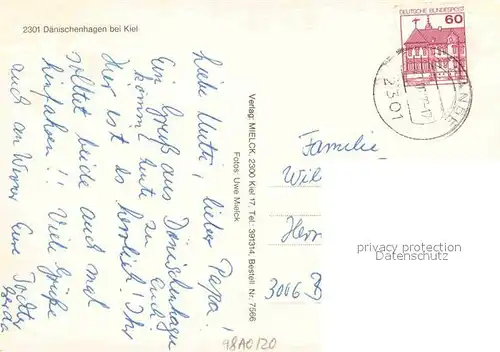 2301 Dänischenhagen bei Kiel
Liebe Mutti, lieber Papa!
Ein Gruß aus Dänischenhagen
kommt heute zu Euch.
Hier ist es herrlich! Ihr
solltet beide auch mal
hinfahren!! Viele Grüße
auch an Werner Eure Tochter
Gerda
Verlag: MIELCK, 2300 Kiel 17, Tel.: 391314, Bestell Nr. 7566
Fotos: Uwe Mielck
DEUTSCHE BUNDESPOST
60
2301
Familie
Wil
Herr
3006 B
privacy protection
ansichtskarten-lexikon.de
98A0120